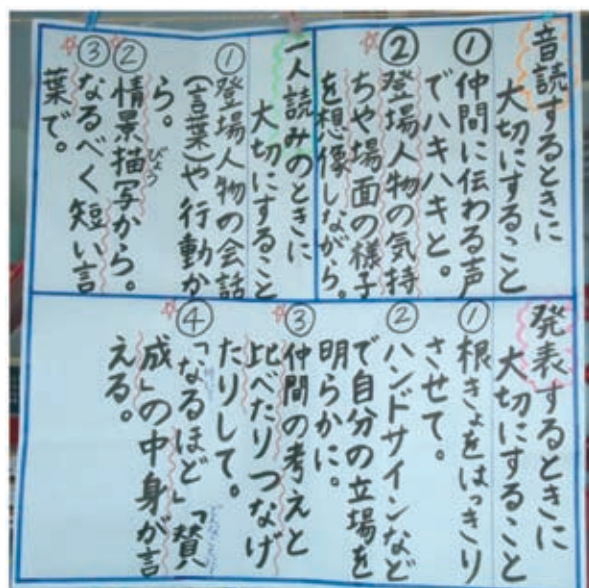 音読するときに
大切にすること
①仲間に伝わる声
でハキハキと。
②登場人物の気持
ちや場面の様子
を想像しながら。
一人読みのときに
大切にすること
①登場人物の会話
(言葉)や行動か
ら。
②情景描写から。
びょう
③なるべく短い言
葉で。
発表するときに
大切にすること
①根きょをはっきり
させて。
②ハンドサインなど
で自分の立場を
明らかに。
③仲間の考えと
比べたりつなげ
たりして。
④「なるほど」「賛
成」の中身が言
える。